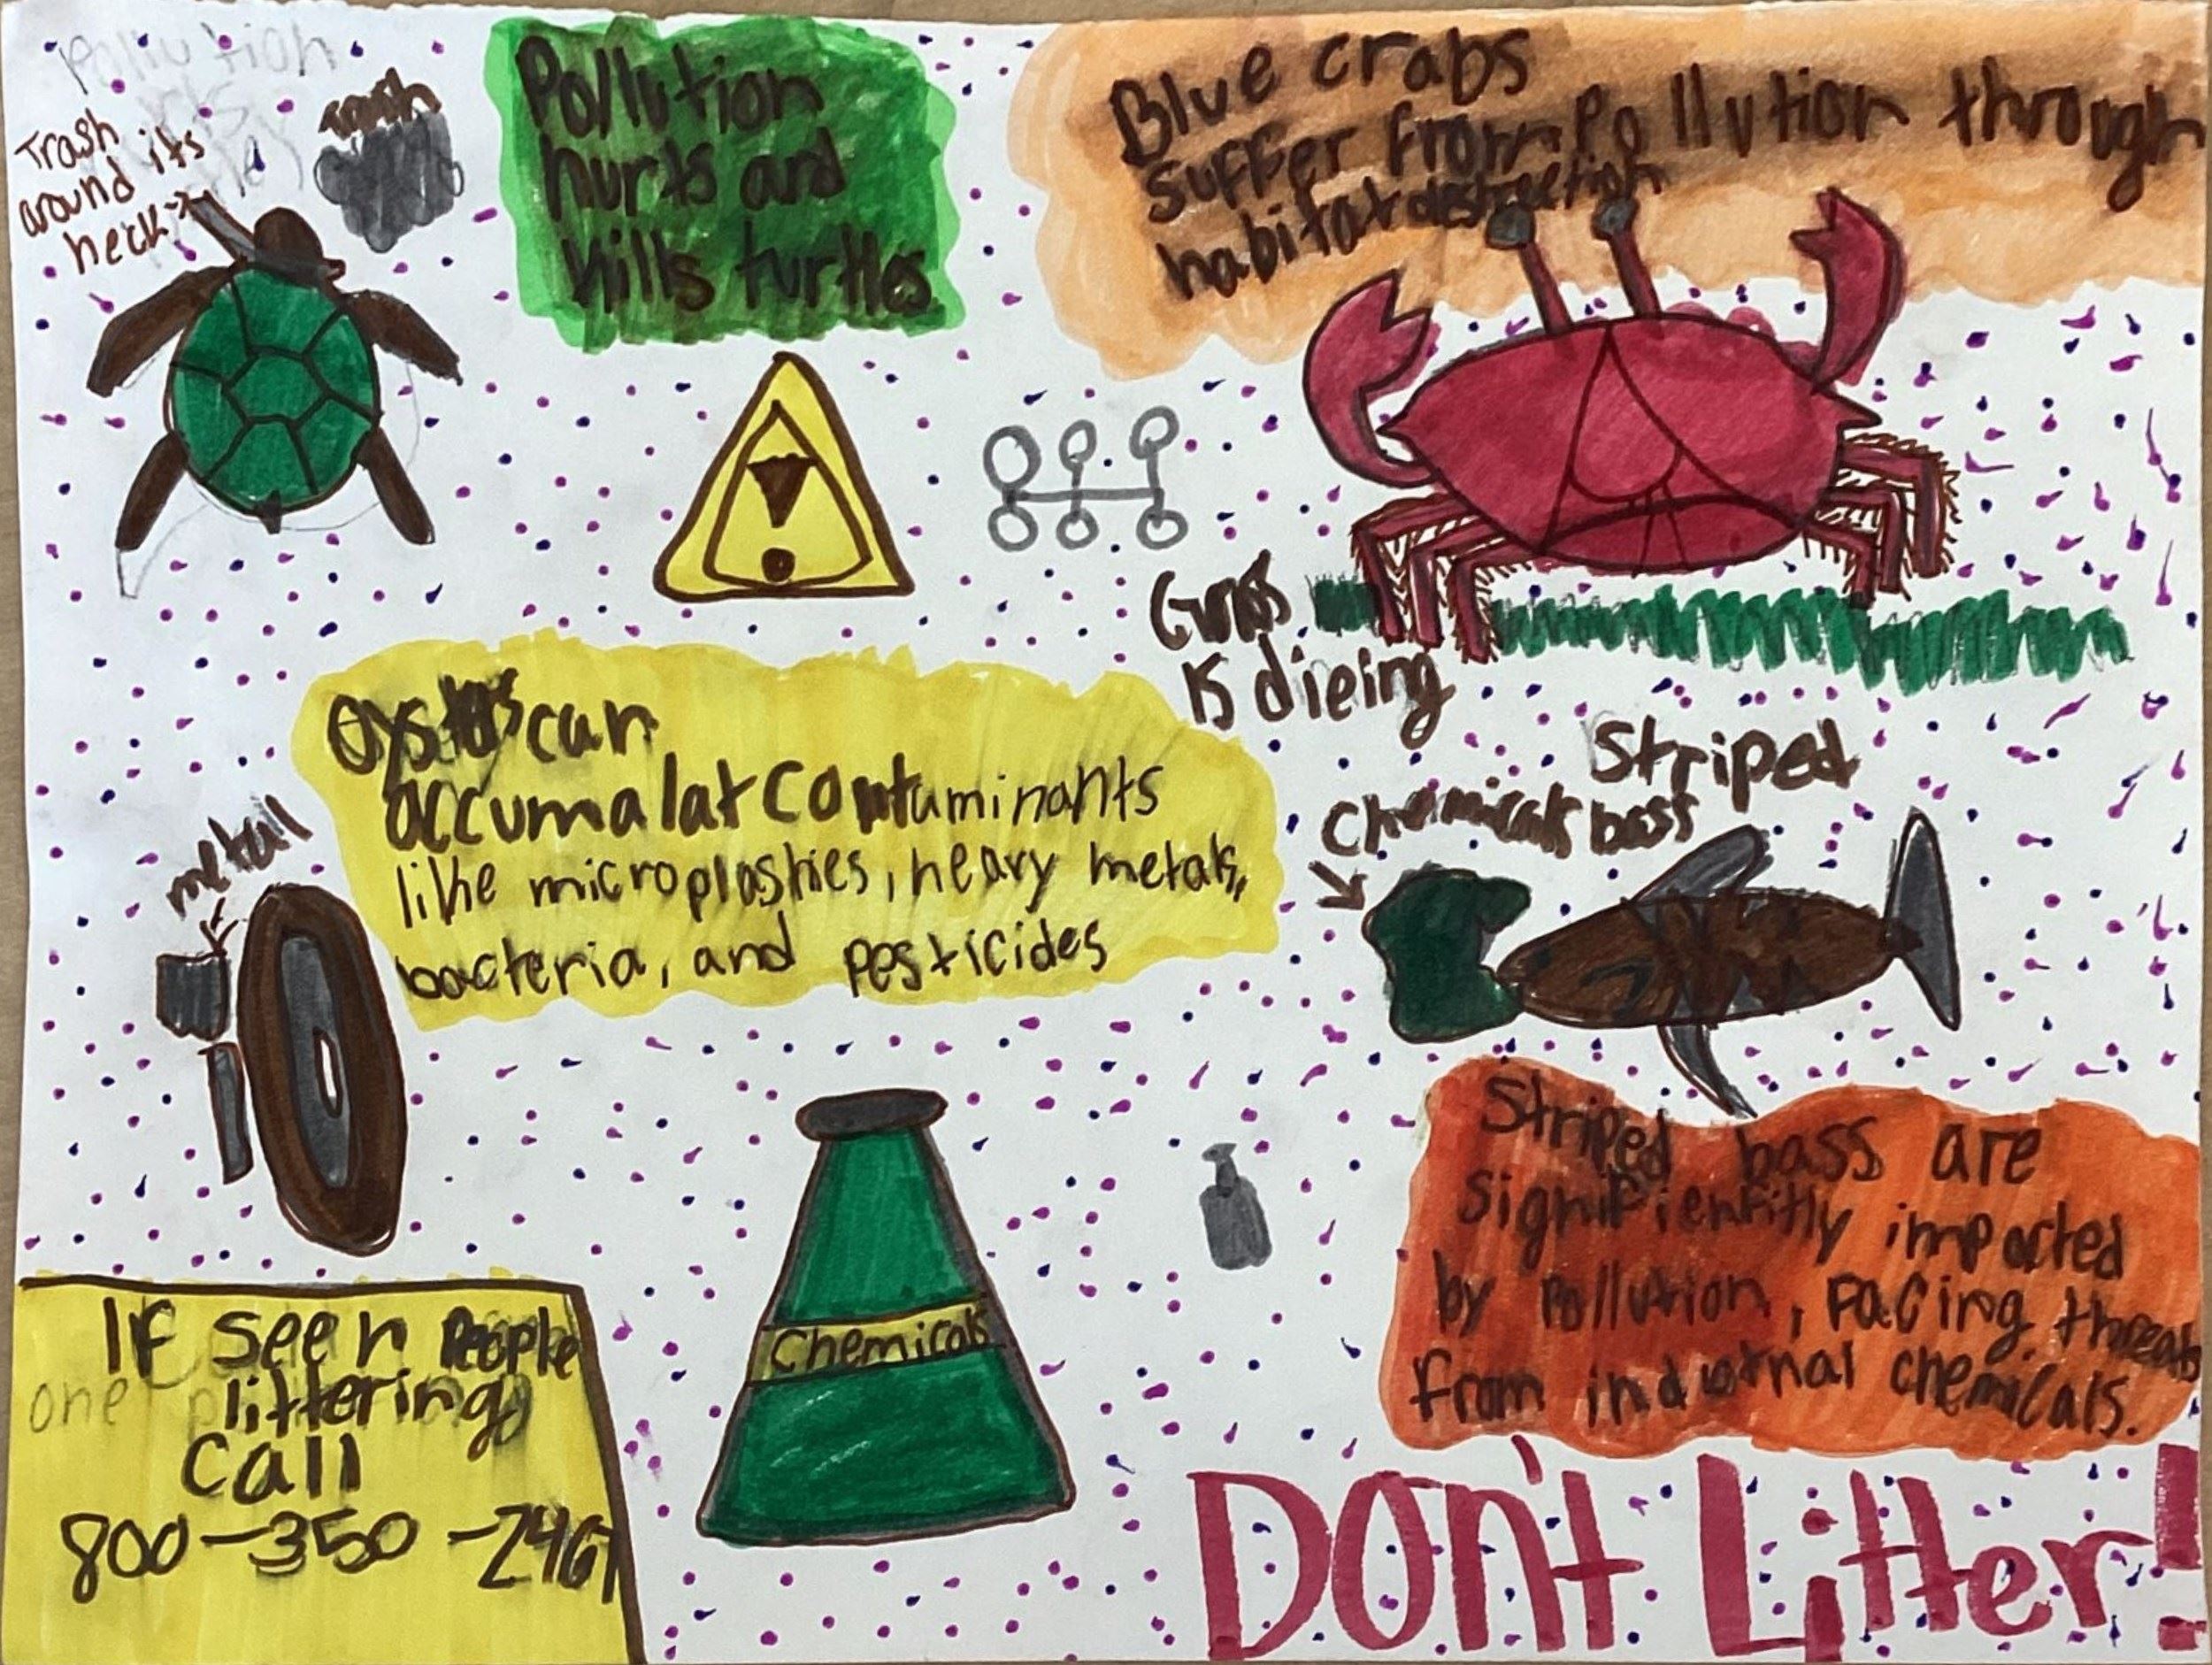 Pollution
Trash
around its
neck
trash
Pollution
hurts and
kills turtles
Blue crabs
suffer from Pollution through
habitat destruction
Grass
is dieing
Oysters can
accumalat contaminants
like microplastics, heavy metals,
bacteria, and pesticides
metal
Striped
bass
Chemicals
Striped bass are
signifientitly impacted
by Pollution, Facing threats
from industrial chemicals.
Chemicals
If seen People
one
littering
call
800-350-2467
DON't Litter!